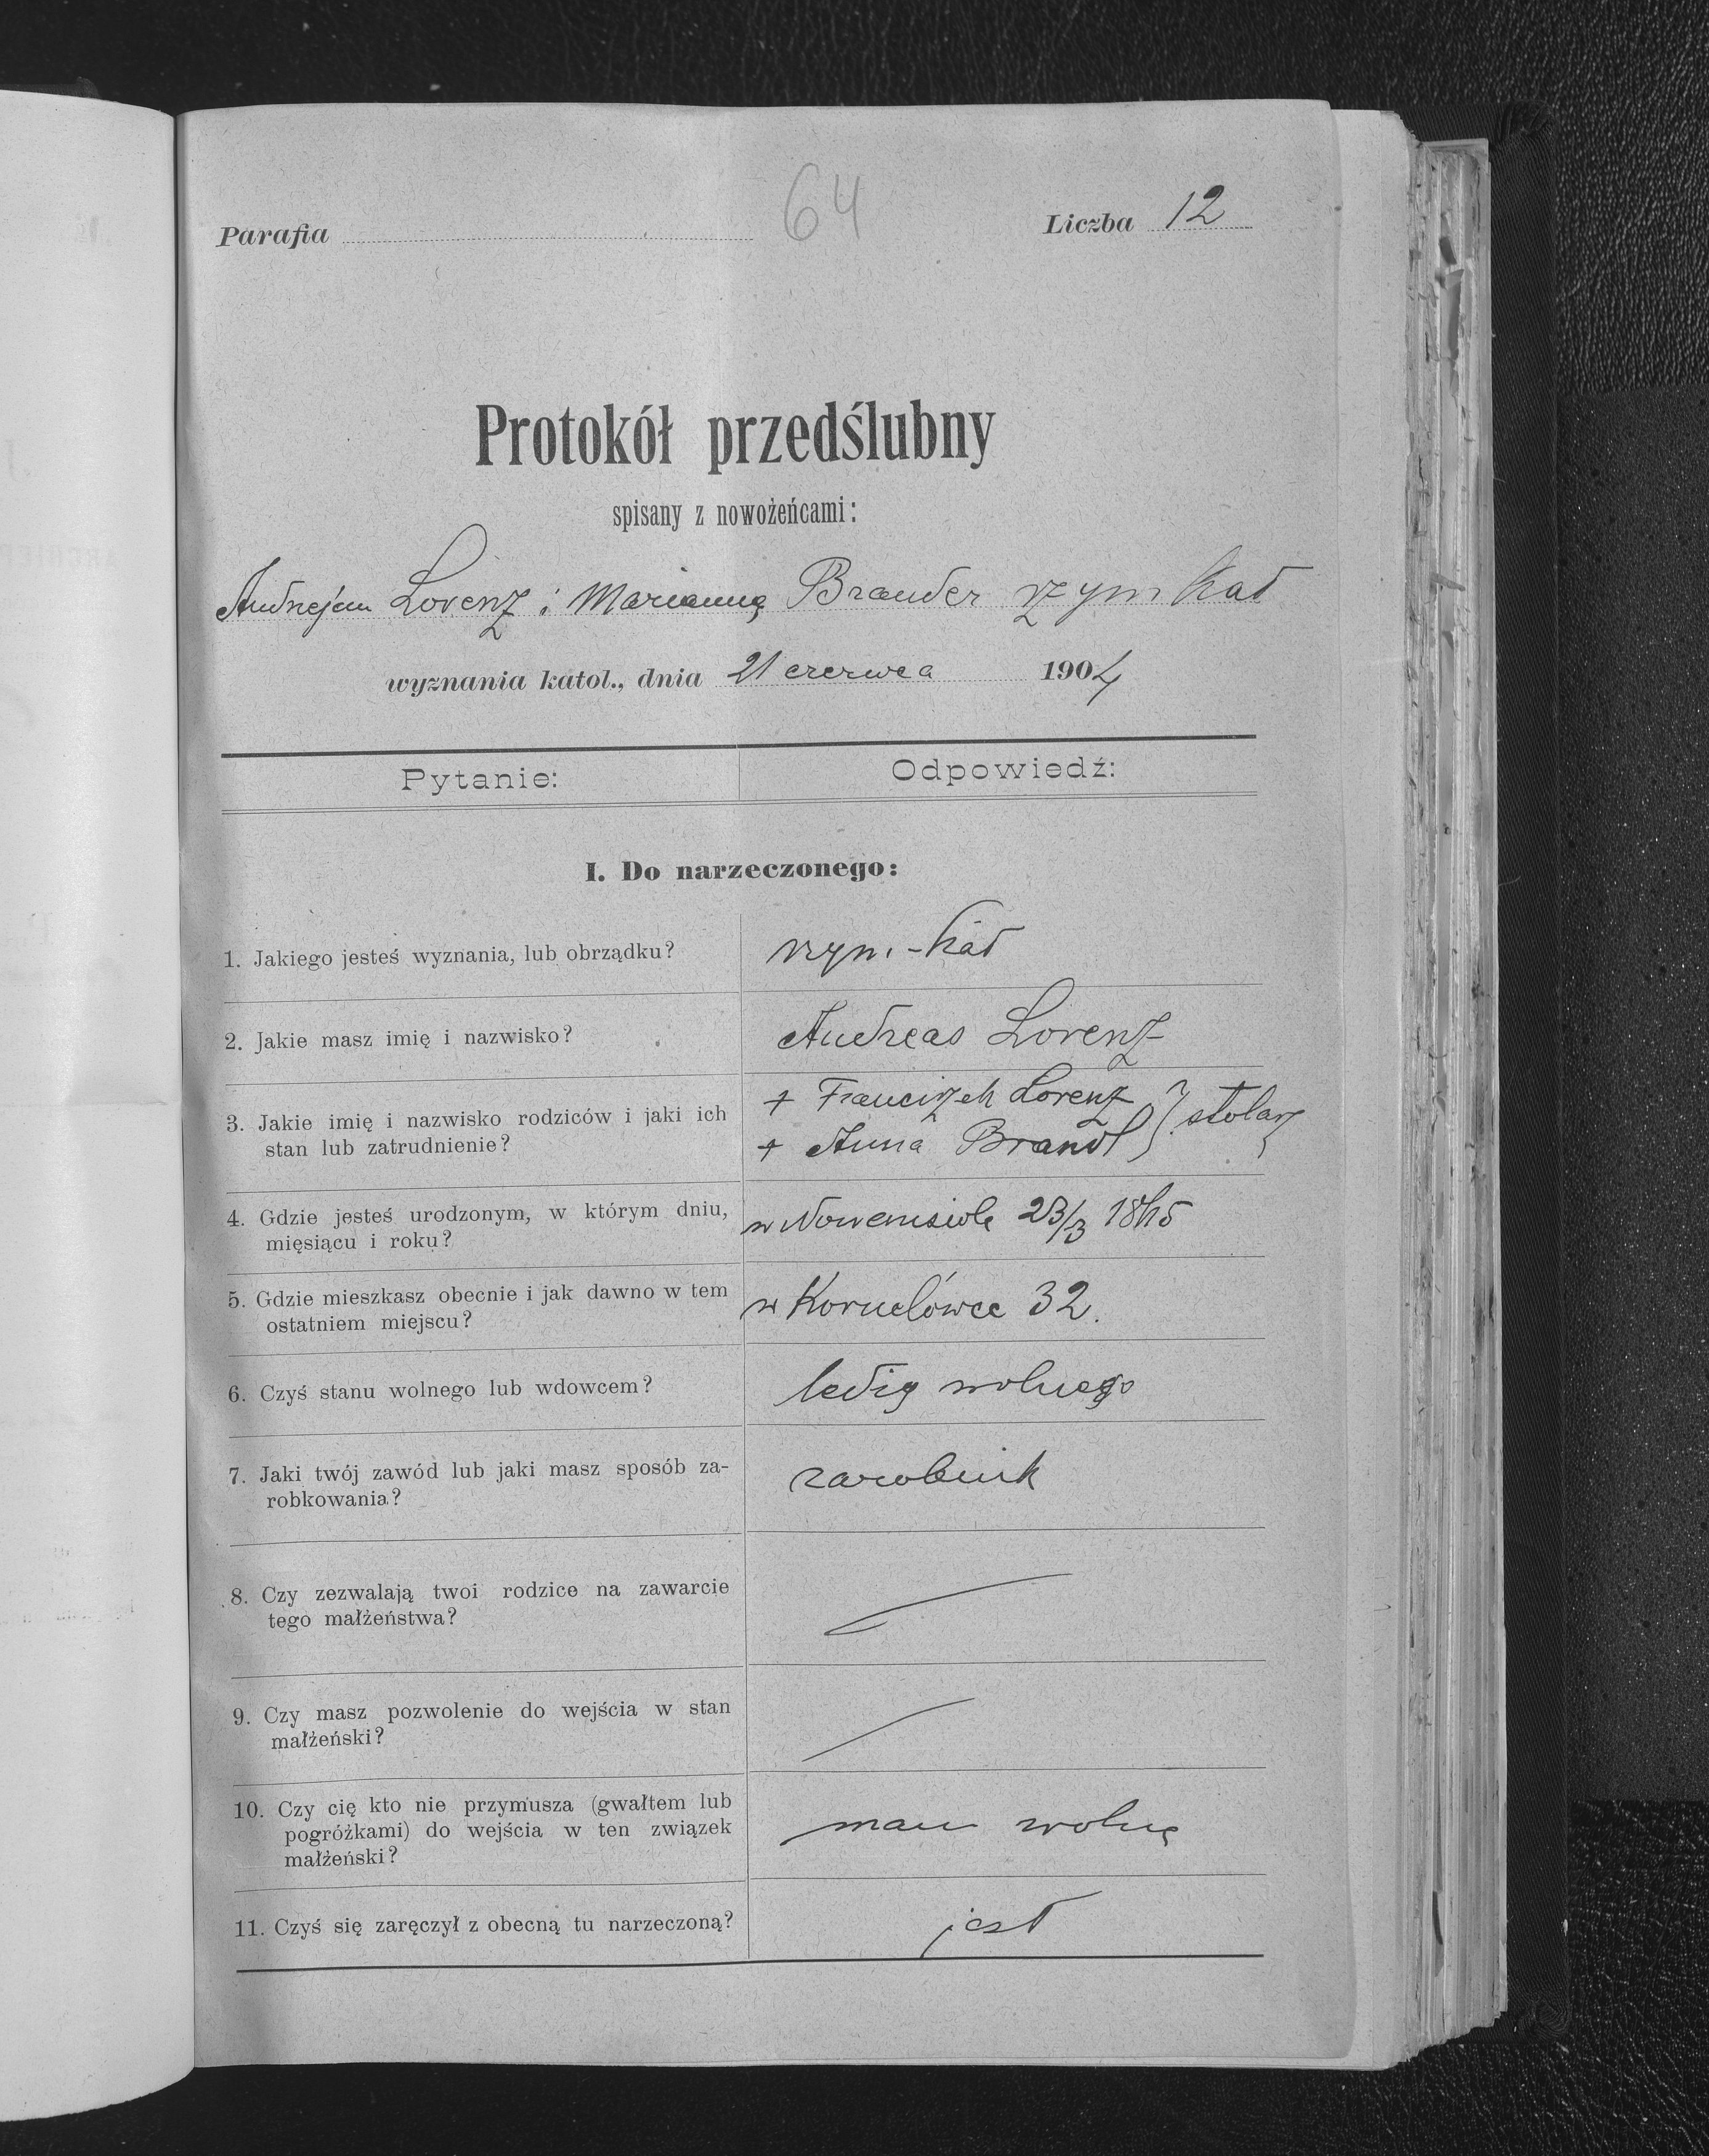 64
Parafia Liczba 12
Protokół przedślubny
spisany z nowożeńcami:
Andrzejem Lorenz i Marianną Brander rzym kat
wyznania katol., dnia 21 czerwca 1904
Pytanie: Odpowiedź:
I. Do narzeczonego:
1. Jakiego jesteś wyznania, lub obrządku? rzym.-kat
2. Jakie masz imię i nazwisko? Andreas Lorenz
3. Jakie imię i nazwisko rodziców i jaki ich
stan lub zatrudnienie?
+ Franciszek Lorenz
+ Anna Brandl } stolarz
4. Gdzie jesteś urodzonym, w którym dniu,
mięsiącu i roku?
w 23/3
5. Gdzie mieszkasz obecnie i jak dawno w tem
ostatniem miejscu?
w Kornelówce 32.
6. Czyś stanu wolnego lub wdowcem? ledig wolnego
7. Jaki twój zawód lub jaki masz sposób za-
robkowania?
zarobnik
8. Czy zezwalają twoi rodzice na zawarcie
tego małżeństwa?
9. Czy masz pozwolenie do wejścia w stan
małżeński?
10. Czy cię kto nie przymusza (gwałtem lub
pogróżkami) do wejścia w ten związek
małżeński?
mam wolną
11. Czyś się zaręczył z obecną tu narzeczoną? jest